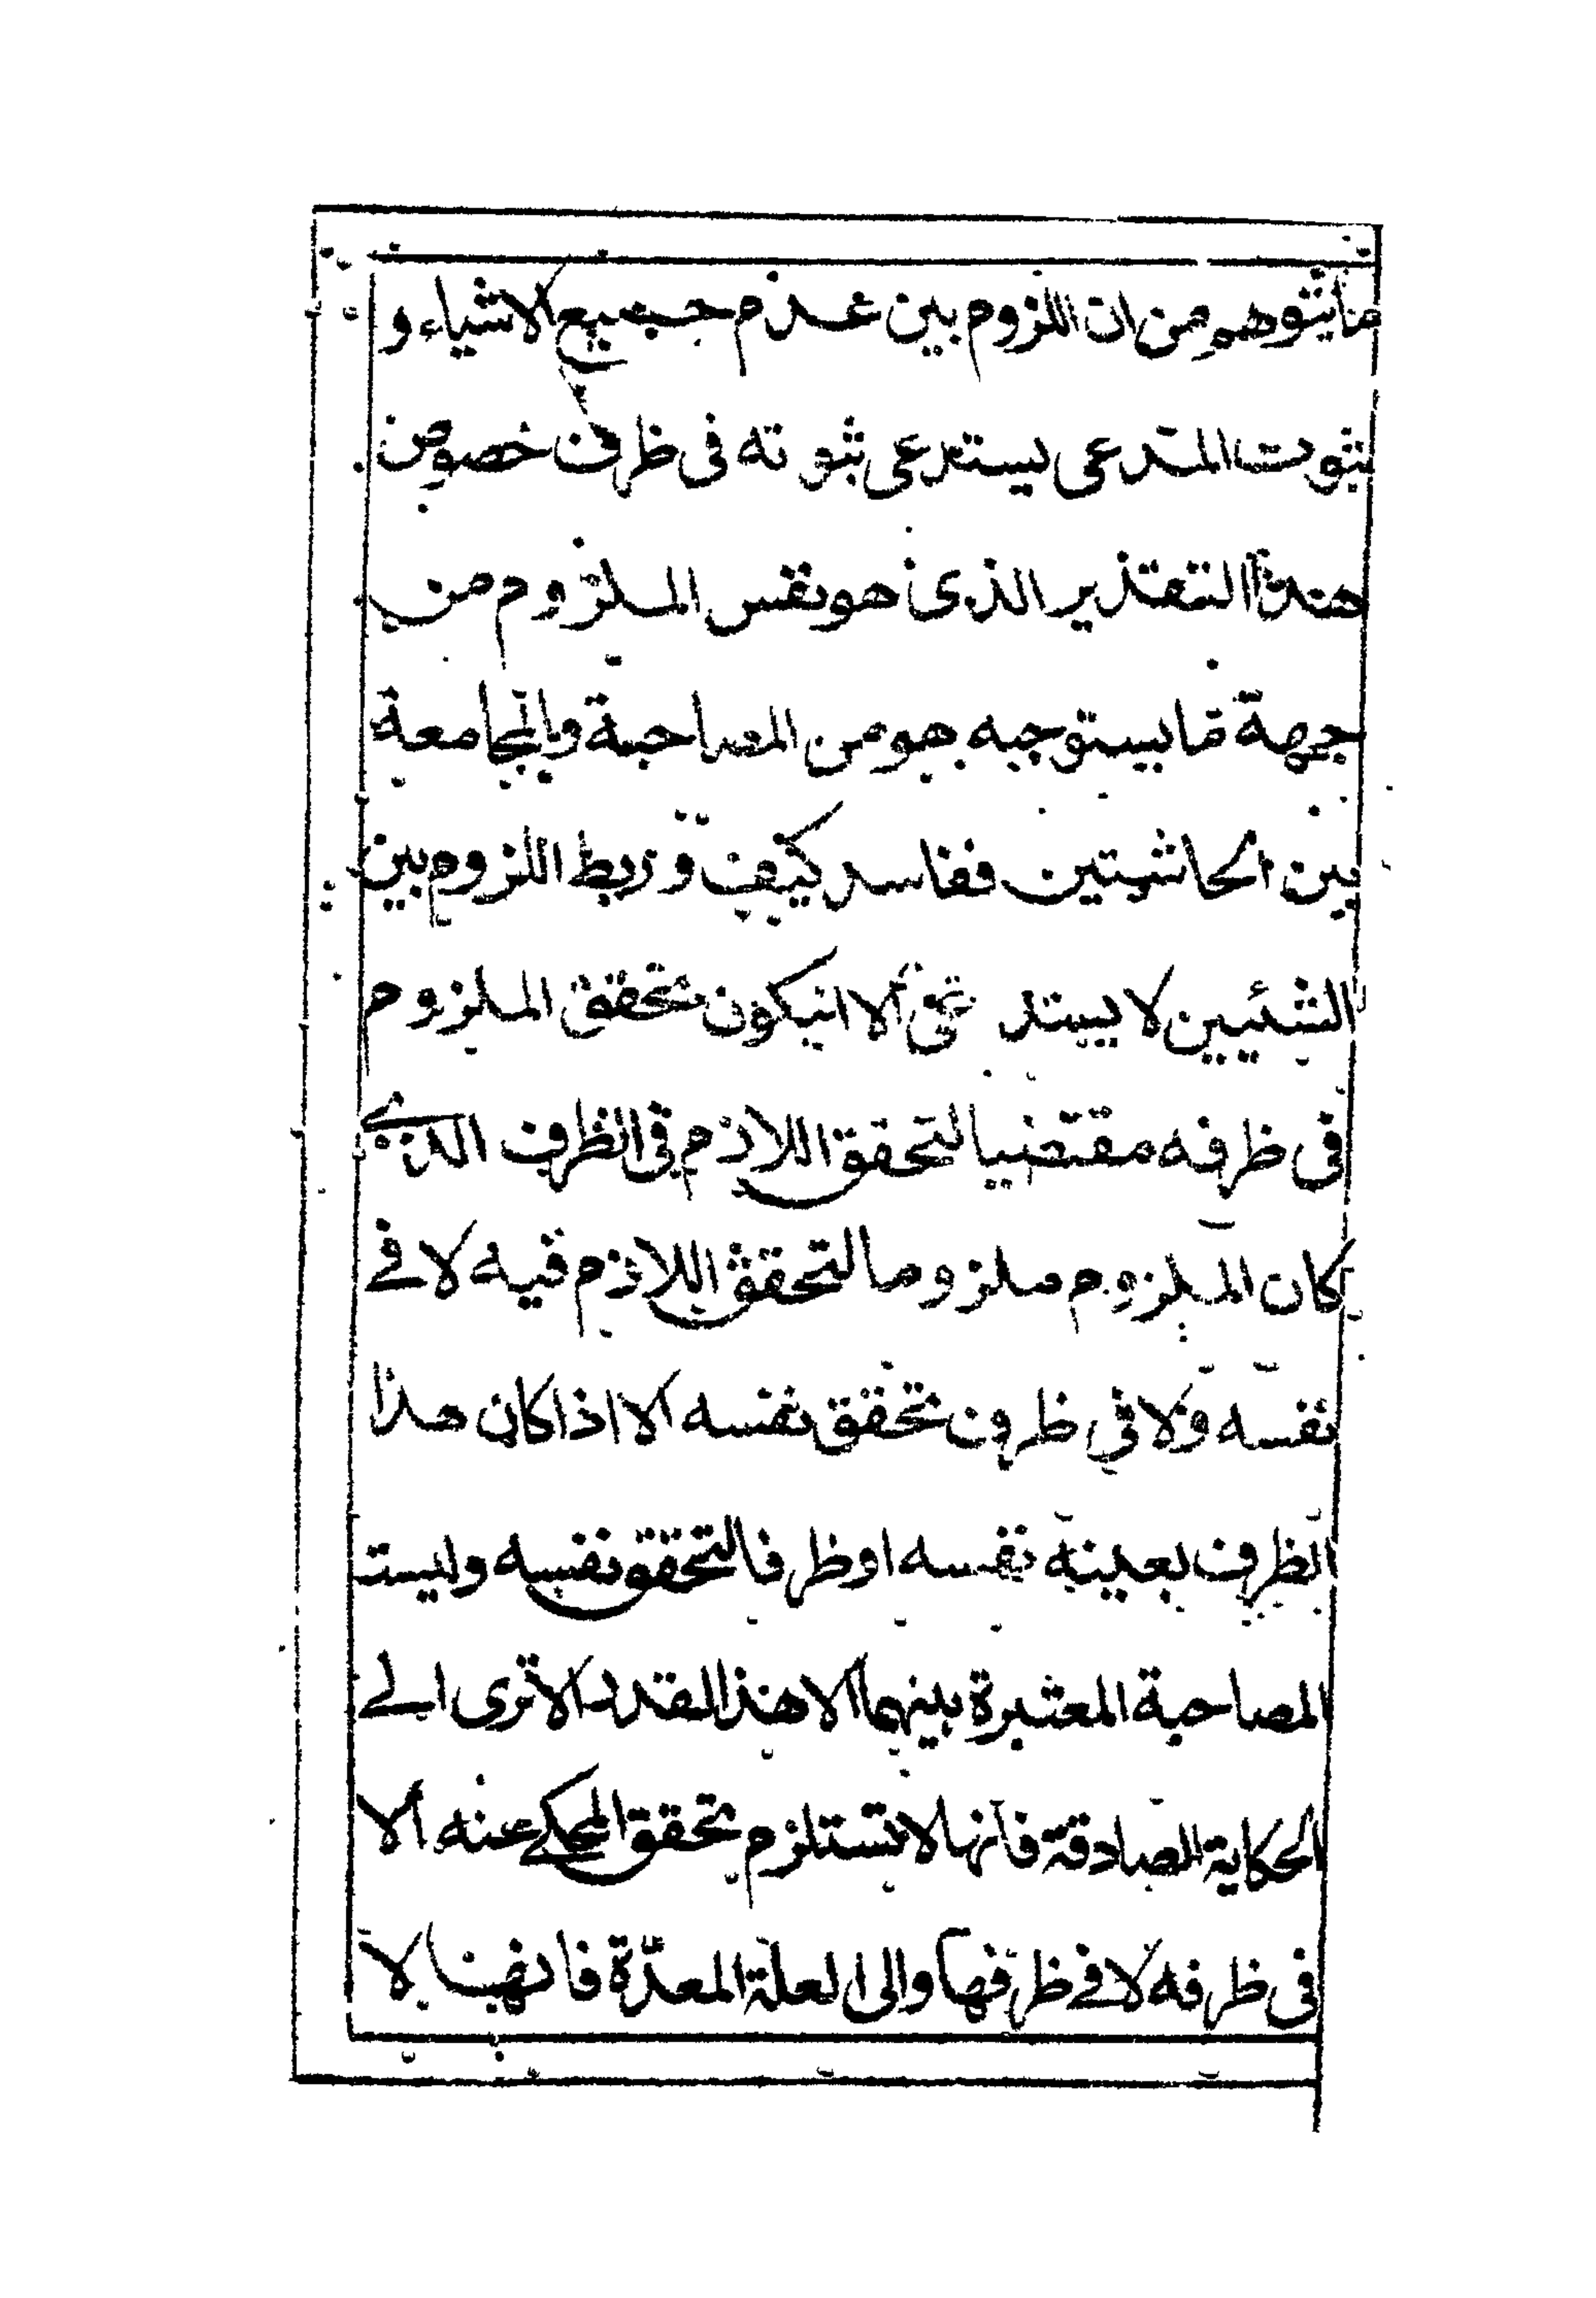 ما يتوهم من ان اللزوم بين عدم جميع الاشياء و
ثبوت المدعى يستدعى ثبوته فى ظرف خصوص
هذا التقدير الذى هو نفس الملزوم من
جهة ما يستوجبه هو من المصاحبة والمجامعة
بين الحاشيتين ففاسد كيف وربط اللزوم بين
الشئيين لا يستدعى الا انيكون تحقق الملزوم
فى ظرفه مقتضيا لتحقق اللازم فى الظرف الذي
كان الملزوم ملزوما لتحقق اللازم فيه لا في
نفسه ولا في ظرف تحقق نفسه الا اذا كان هذا
الظرف بعينه نفسه او ظرفا لتحقق نفسه وليست
المصاحبة المعتبرة بينهما الا هذا القدر الا ترى الے
الحكاية الصادقة فانها لا تستلزم تحقق المحكے عنه الا
فى ظرفه لا فے ظرفها والى العلة المعدّة فانها لا